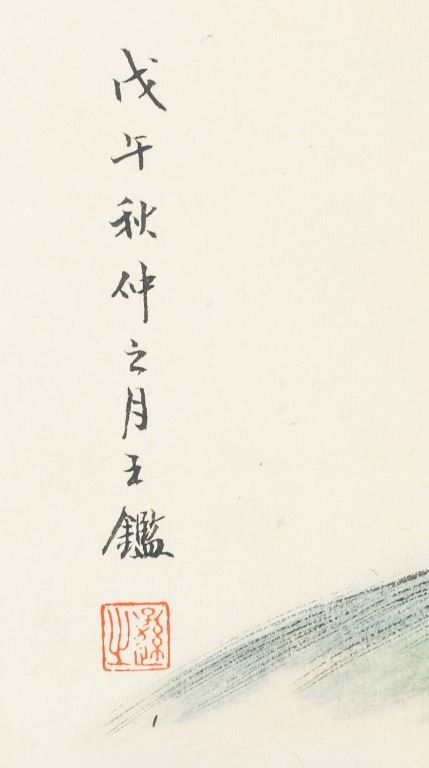 戊午秋仲之月王鑑